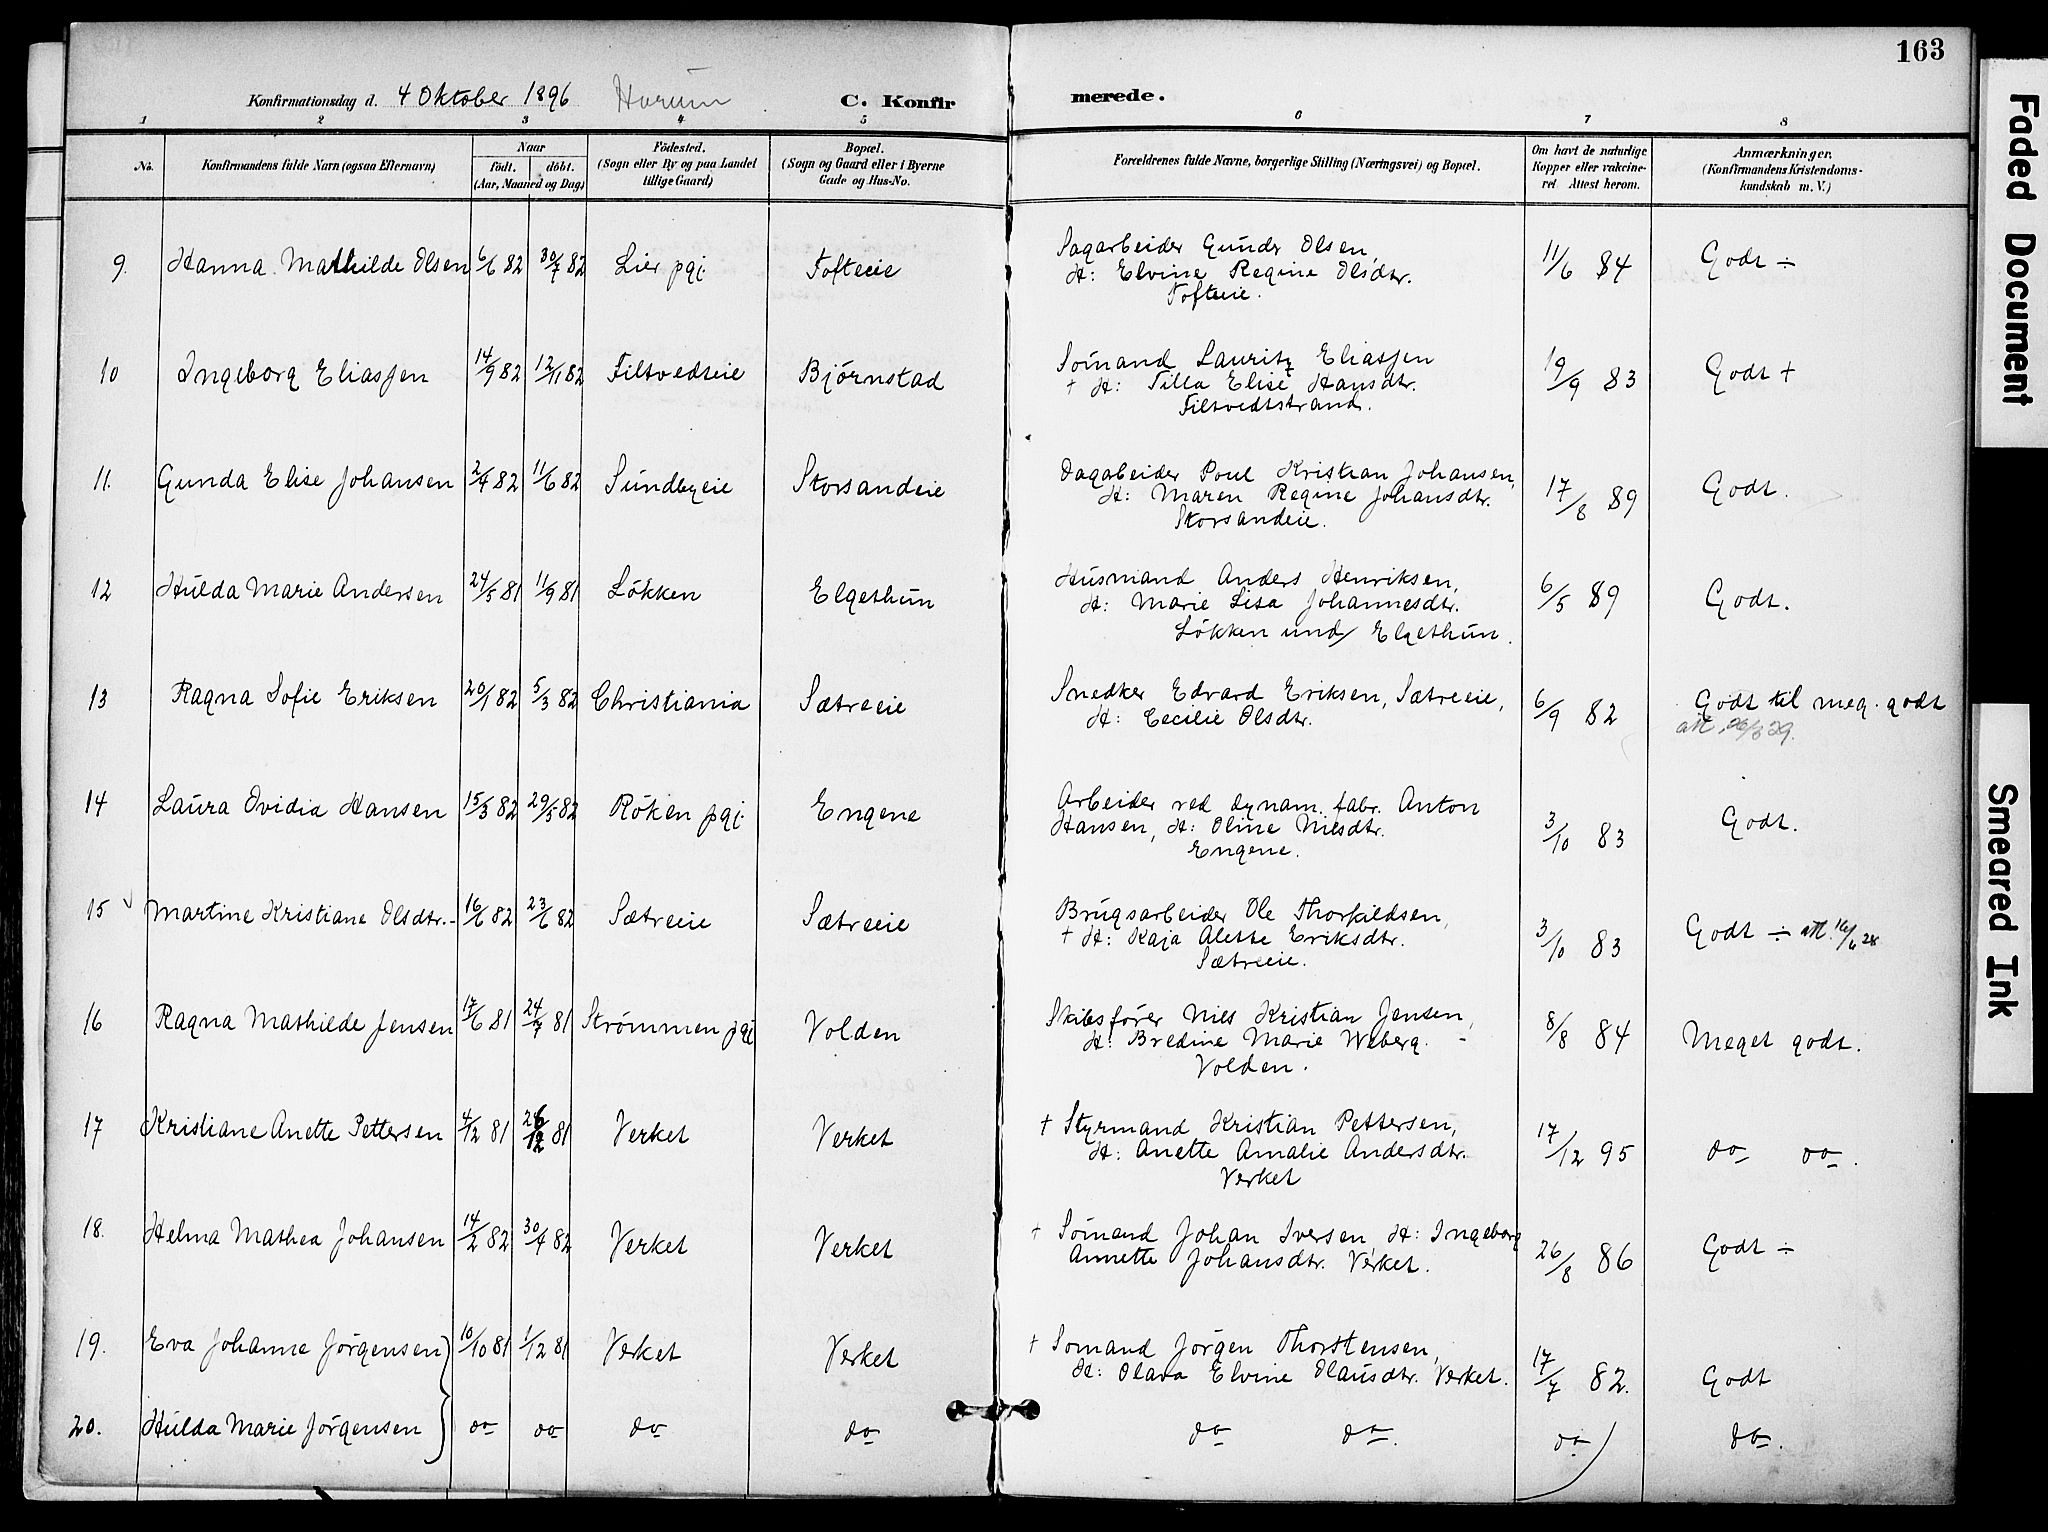 163
Konfirmationsdag d. 4 Oktober 1896 Hurum C. Konfirmerede.
1 2 3 4 5 6 7 8
No. Konfirmandens fulde Navn (ogsaa Efternavn) Naar födt. döbt. (Aar, Maaned og Dag) Födested. (Sogn eller By og paa Landet tillige Gaard) Bopæl. (Sogn og Gaard eller i Byerne Gade og Hus-No. Forældrenes fulde Navne, borgerlige Stilling (Næringsvei) og Bopæl. Om havt de naturlige Kopper eller vakcineret Attest herom. Anmærkninger. (Konfirmandens Kristendomskundskab m. V.)
9. Hanna Mathilde Olsen 6/6 82 30/7 82 Lier pgj. Tofteeie Sagarbeider Gunder Olsen, H: Elvine Regine Olsdtr. Tofteeie. 11/6 84 Godt ÷
10 Ingeborg Eliassen 14/9 82 12/11 82 Filtvedteie Bjørnstad Sømand Lauritz Eliassen + H: Tilla Elise Hansdtr. Filtvedtstrand. 19/9 83 Godt +
11. Gunda Elise Johansen 2/4 82 11/6 82 Sundbyeie Storsandeie Dagabeider Poul Kristian Johansen, H: Maren Regine Johansdtr. Storsandeie. 17/8 89 Godt.
12 Hulda Marie Andersen 24/5 81 11/9 81 Løkken Elgethun Husmand Anders Henriksen, H: Marie Lisa Johannesdtr. Løkken und/ Elgethun. 6/5 89 Godt.
13 Ragna Sofie Eriksen 20/1 82 5/3 82 Christiania Sætreeie Snedker Edvard Eriksen, Sætreeie, H: Cecilie Olsdtr. 6/9 82 Godt til meg. godt
att. 26/3 29.
14 Laura Ovidia Hansen 15/3 82 29/5 82 Röken pgj. Engene Arbeider ved dynam. fabr. Anton Hansen, H: Oline Nilsdtr. Engene. 3/10 83 Godt.
15 Martine Kristiane Olsdtr. 16/6 82 23/6 82 Sætreeie Sætreeie Brugsarbeider Ole Thorkildsen, + H: Kaja Alette Eriksdtr. Sætreeie. 3/10 83 Godt ÷ att. 14/6 28
16 Ragna Mathilde Jensen 17/6 81 24/7 81 Strømmen pgj Volden Skibsfører Niels Kristian Jensen, H: Bredine Marie Weberg. Volden. 8/8 84 Meget godt.
17 Kristiane Anette Pettersen 4/12 81 26/12 81 Verket Verket + Styrmand Kristian Pettersen, H: Anette Amalie Andersdtr. Verket 17/12 95 do do.
18. Helma Mathea Johansen 14/2 82 30/4 82 Verket Verket + Sømand Johan Iversen H: Ingeborg Annette Johansdtr. Verket. 26/8 86 Godt ÷
19. Eva Johanne Jørgensen 10/10 81 1/12 81 Verket Verket + Somand Jörgen Thorstensen, H: Olava Elvine Olausdtr. Verket. 17/7 82. Godt
20. Hulda Marie Jørgensen do do do do do do. do do.
Faded Document
Smeared Ink